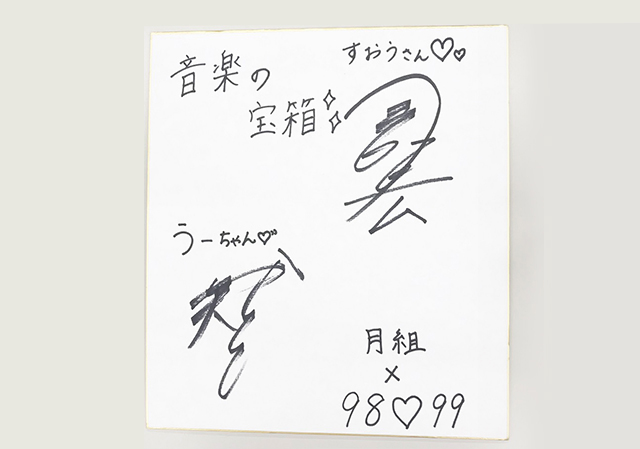 音楽の
宝箱
すおうさん♡♡
うーちゃん♡
月組
×
98♡99